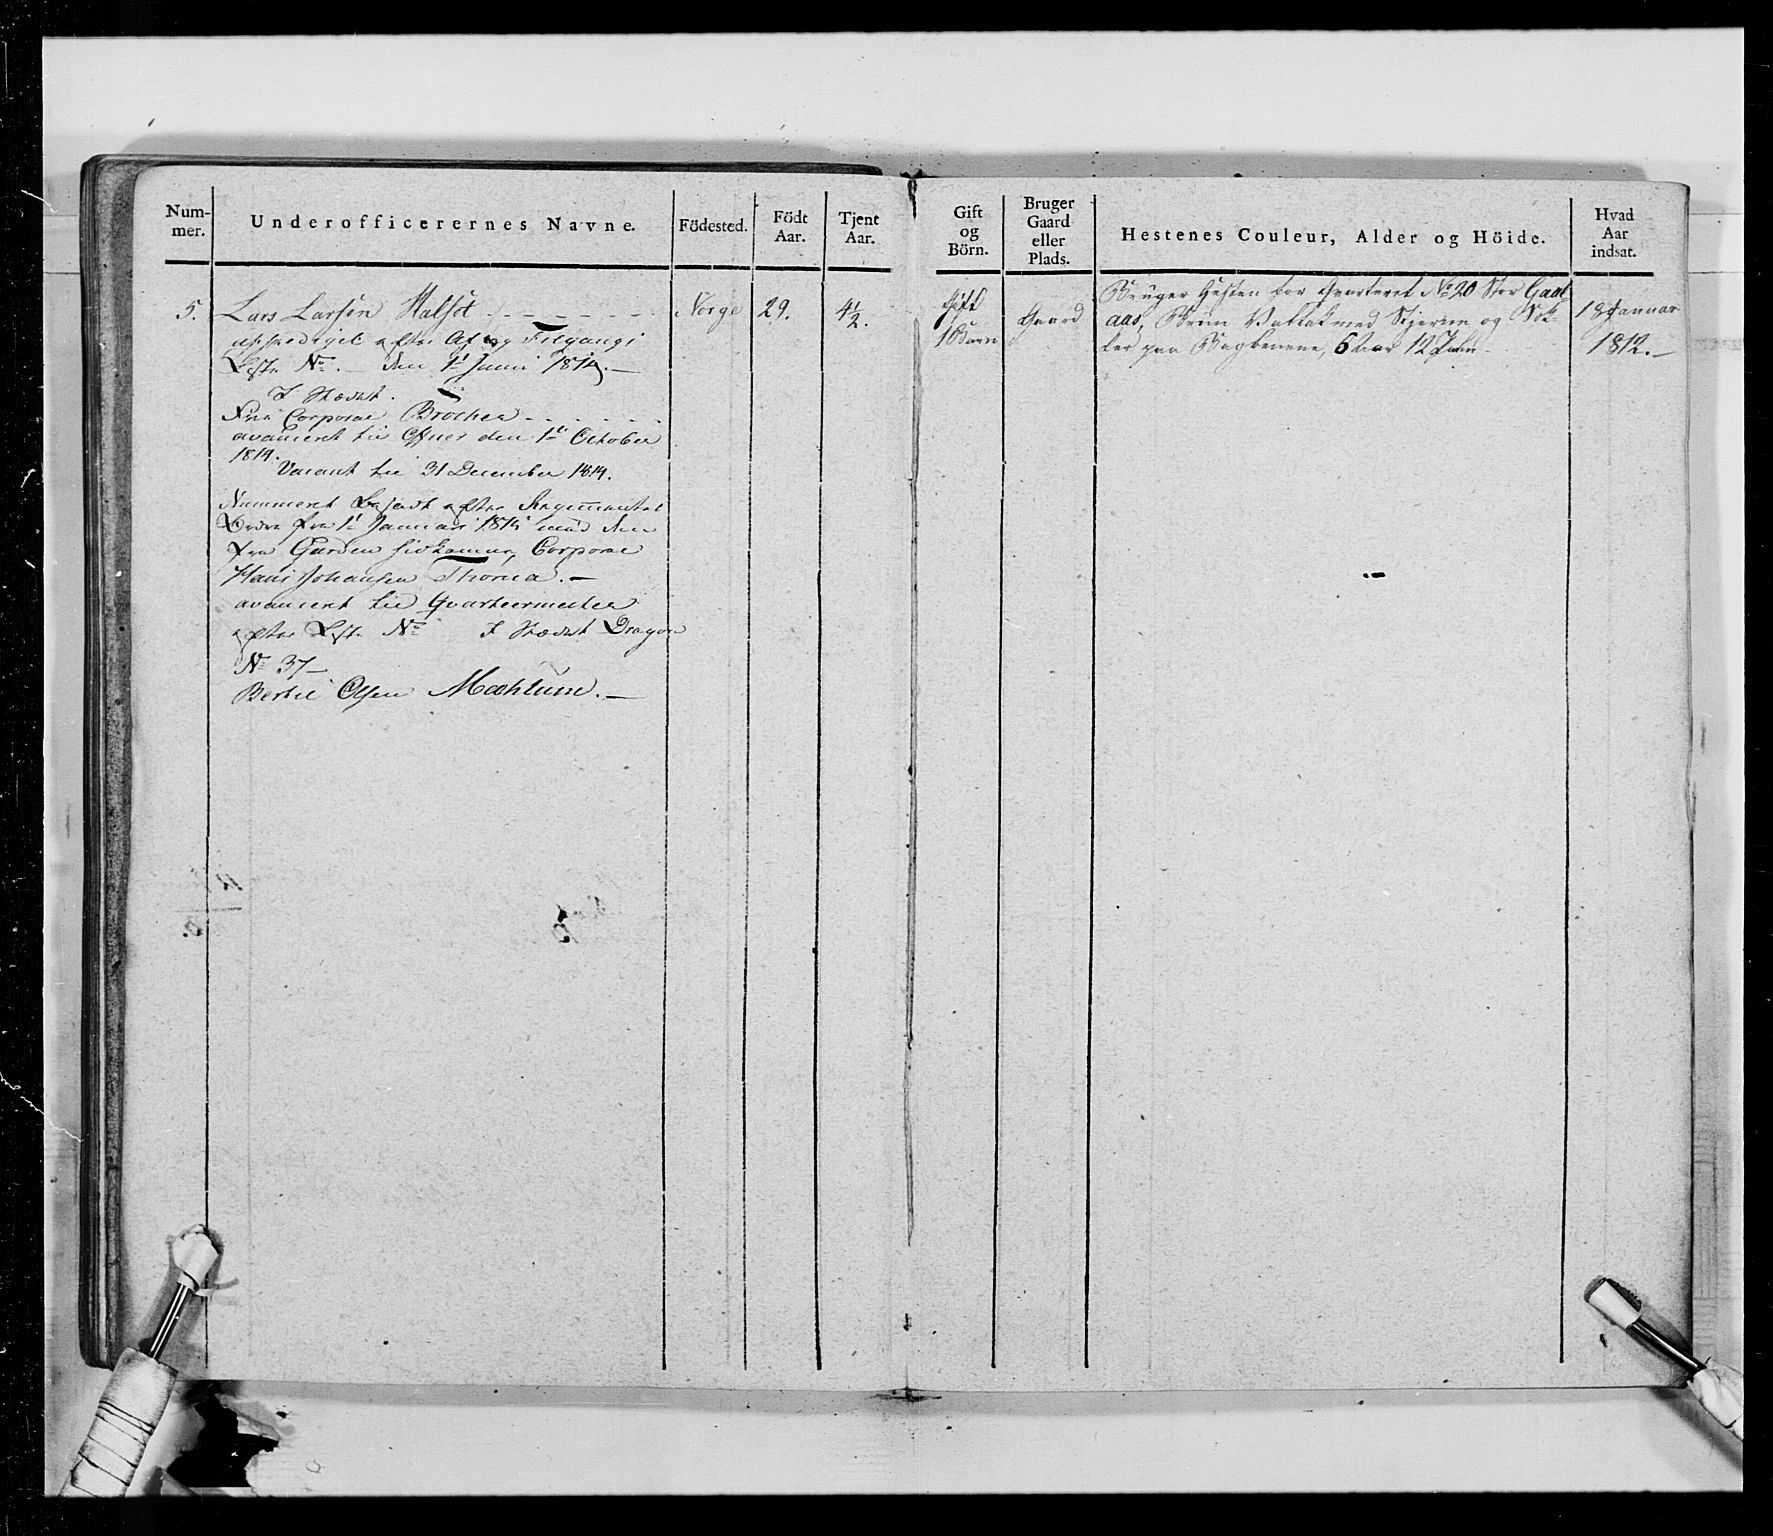 Num-
mer.
Underofficerernes Navne.
Födested.
Födt
Aar.
Tjent
Aar.
Gift
og
Börn.
Bruger
Gaard
eller
Plads.
Hestenes Couleur, Alder og Höide.
Hvad
Aar
indsat.
5. Lars Larsen Halset Norge 29. 4½.
efter Af og Tilgangs
Lste No. — den 1te Junii 1814. —
I Stædet.
Fra Corporal Brochea
avanceret til den 1te October
1814.
Vacant til 31 December 1814.
Nummeret Besadt efter Regimentets
Ordre fra 1te Januari 1815 med den
fra Garden hidkomne, Corporal
Hans Johansen Thorna. —
avanceret til Qvarteermester
efter Lste No I Stædet Dragon
No 37 —
Bertel Olsen Mæhlum. —
Gift
1 Barn
Gaard
Bruger Hesten for Qvarteret No 20 Stor Gaal
aas, Brun Vallak med Stjerne og Sok-
ker paa Bagbenene, 6 Aar 12 Palm
1 Januar
1812. —